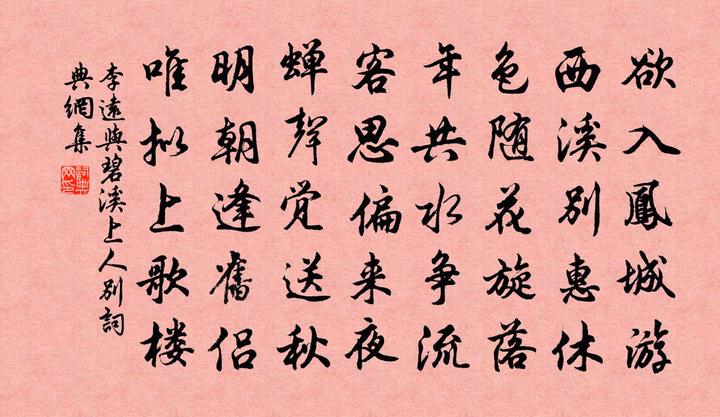 欲入鳳城游
西溪別惠休
色随花旋落
年共水争流
客思偏来夜
蝉聲觉送秋
明朝逢舊侣
唯拟上歌楼
李遠與碧溪上人別詞
典網集